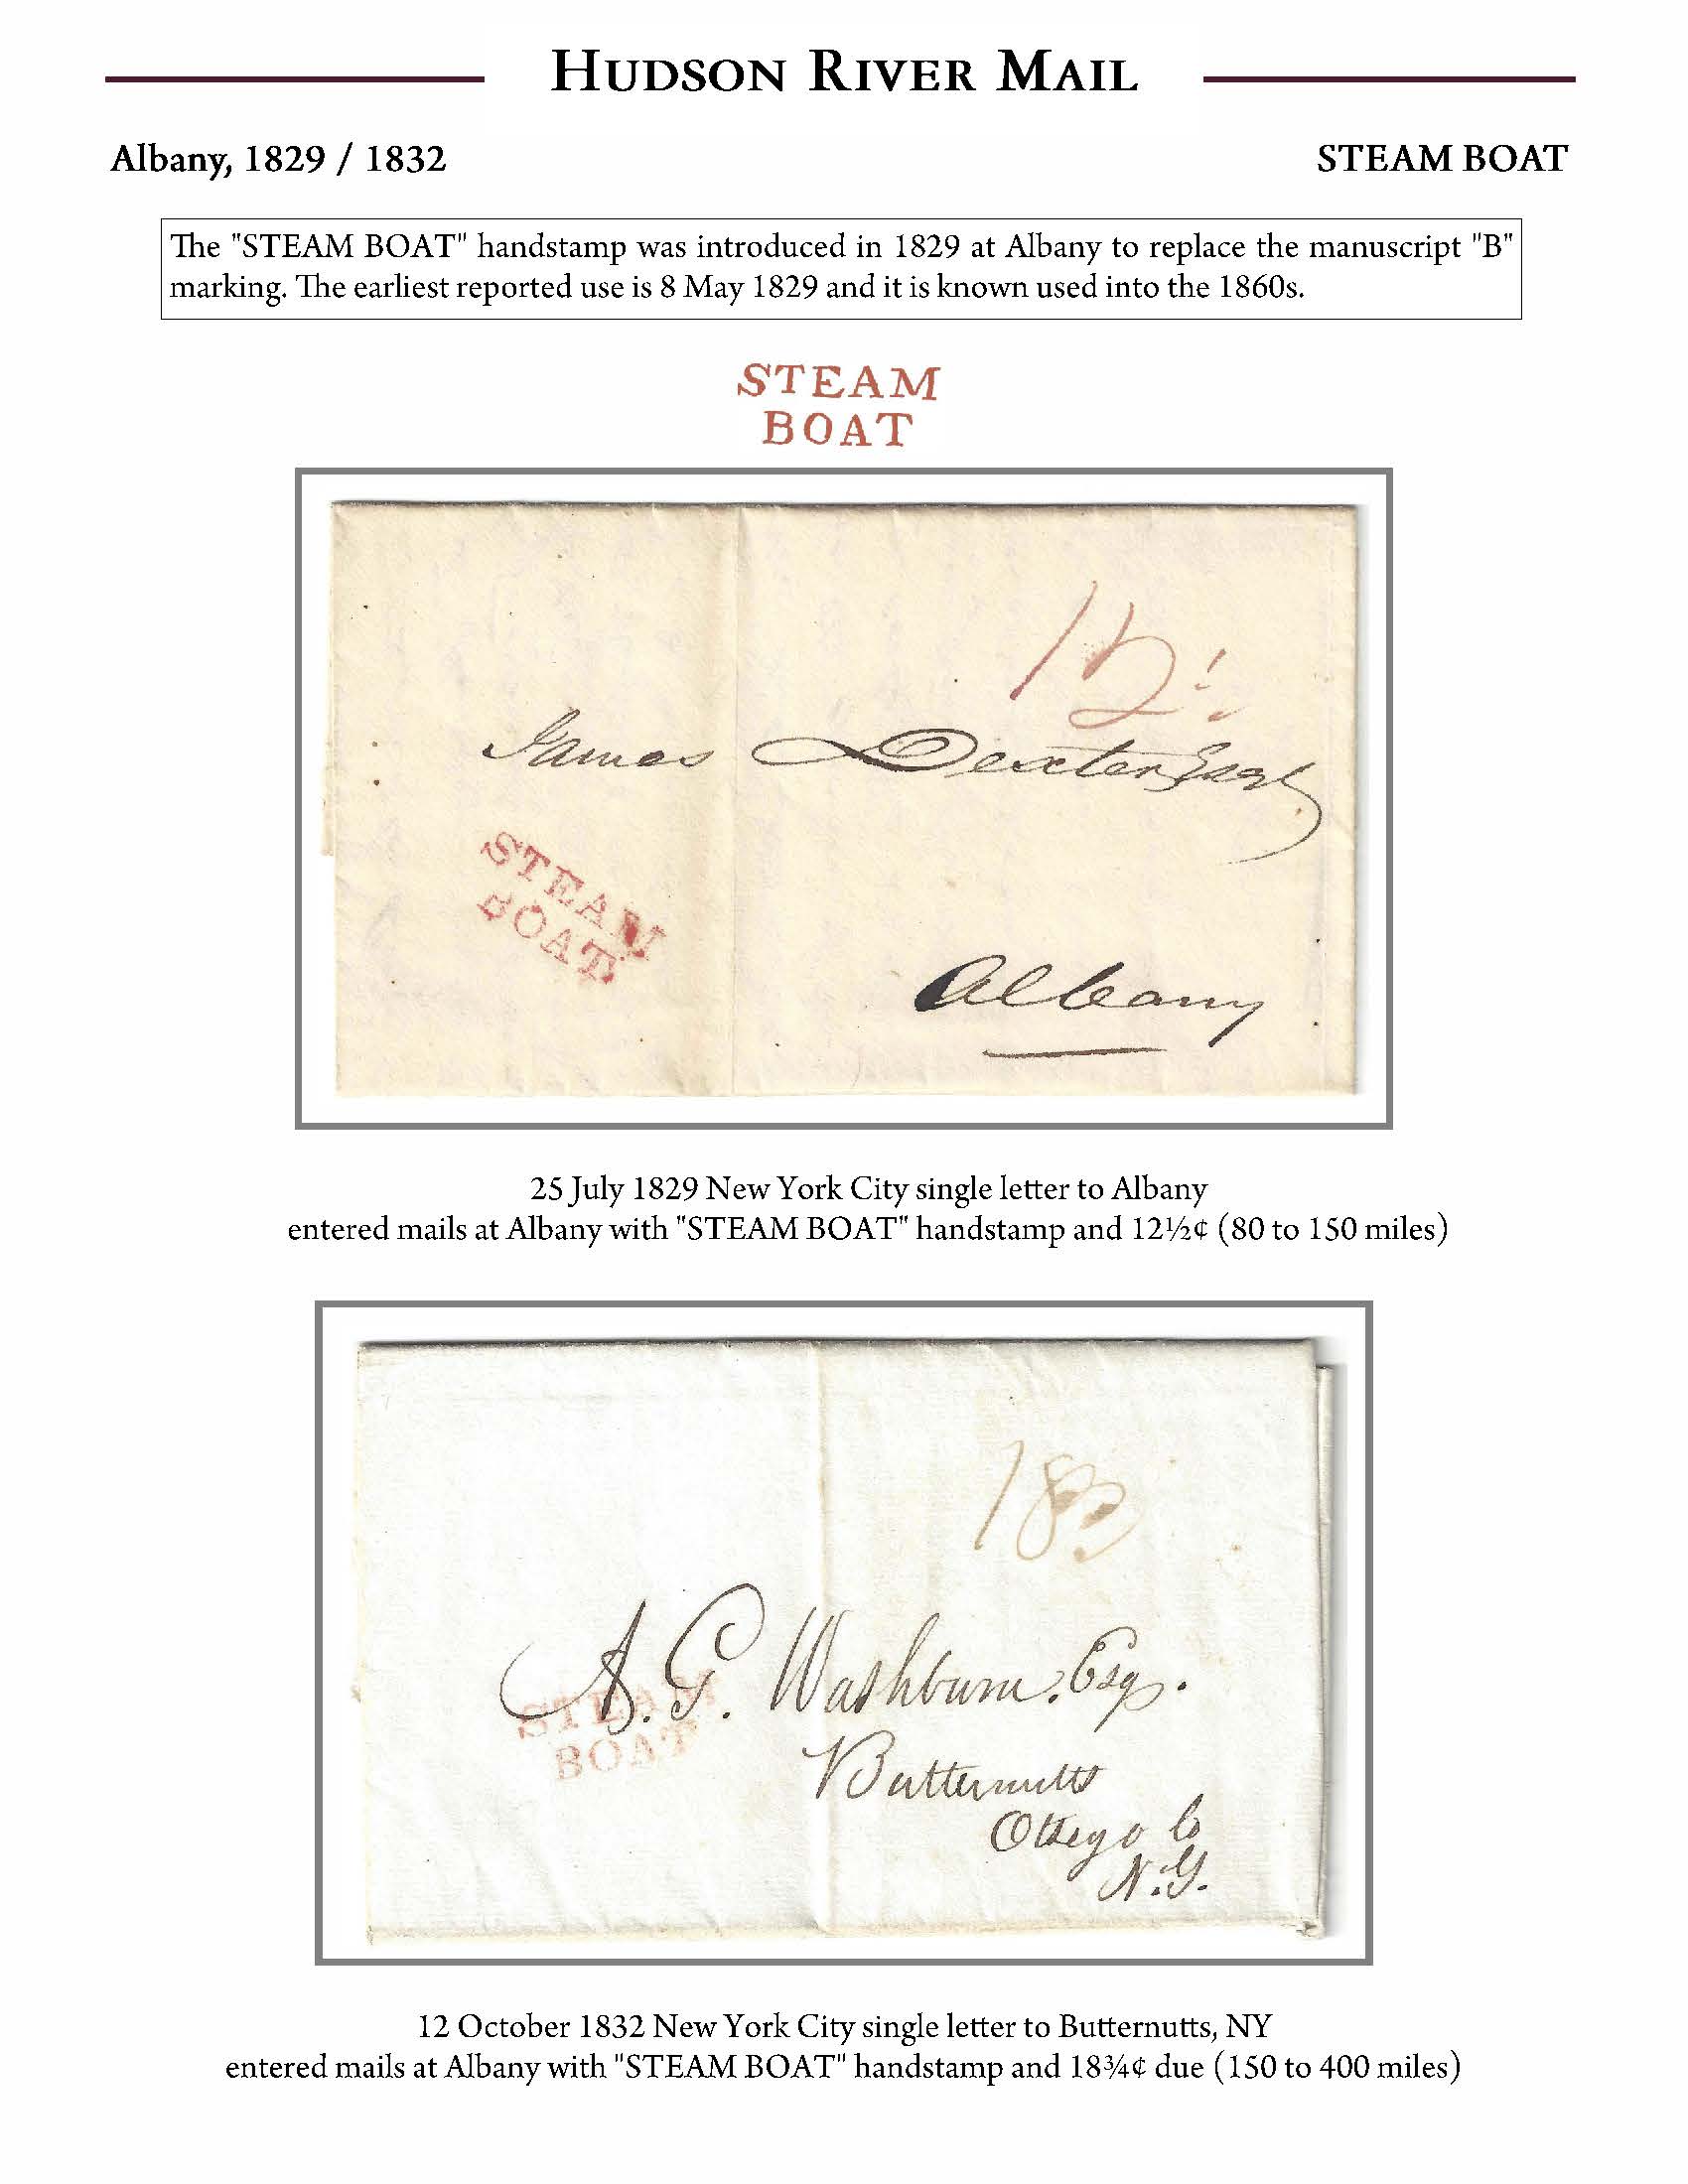 HUDSON RIVER MAIL
Albany, 1829 / 1832
STEAM BOAT
The "STEAM BOAT" handstamp was introduced in 1829 at Albany to replace the manuscript "B"
marking. The earliest reported use is 8 May 1829 and it is known used into the 1860s.
STEAM
BOAT
12½
James Dexter Esqr
STEAM
BOAT
Albany
25 July 1829 New York City single letter to Albany
entered mails at Albany with "STEAM BOAT" handstamp and 12½¢ (80 to 150 miles)
18¾
A. G. Washburn. Esq.
STEAM
BOAT
Butternutts
Otsego Co
N.Y.
12 October 1832 New York City single letter to Butternutts, NY
entered mails at Albany with "STEAM BOAT" handstamp and 18¾¢ due (150 to 400 miles)